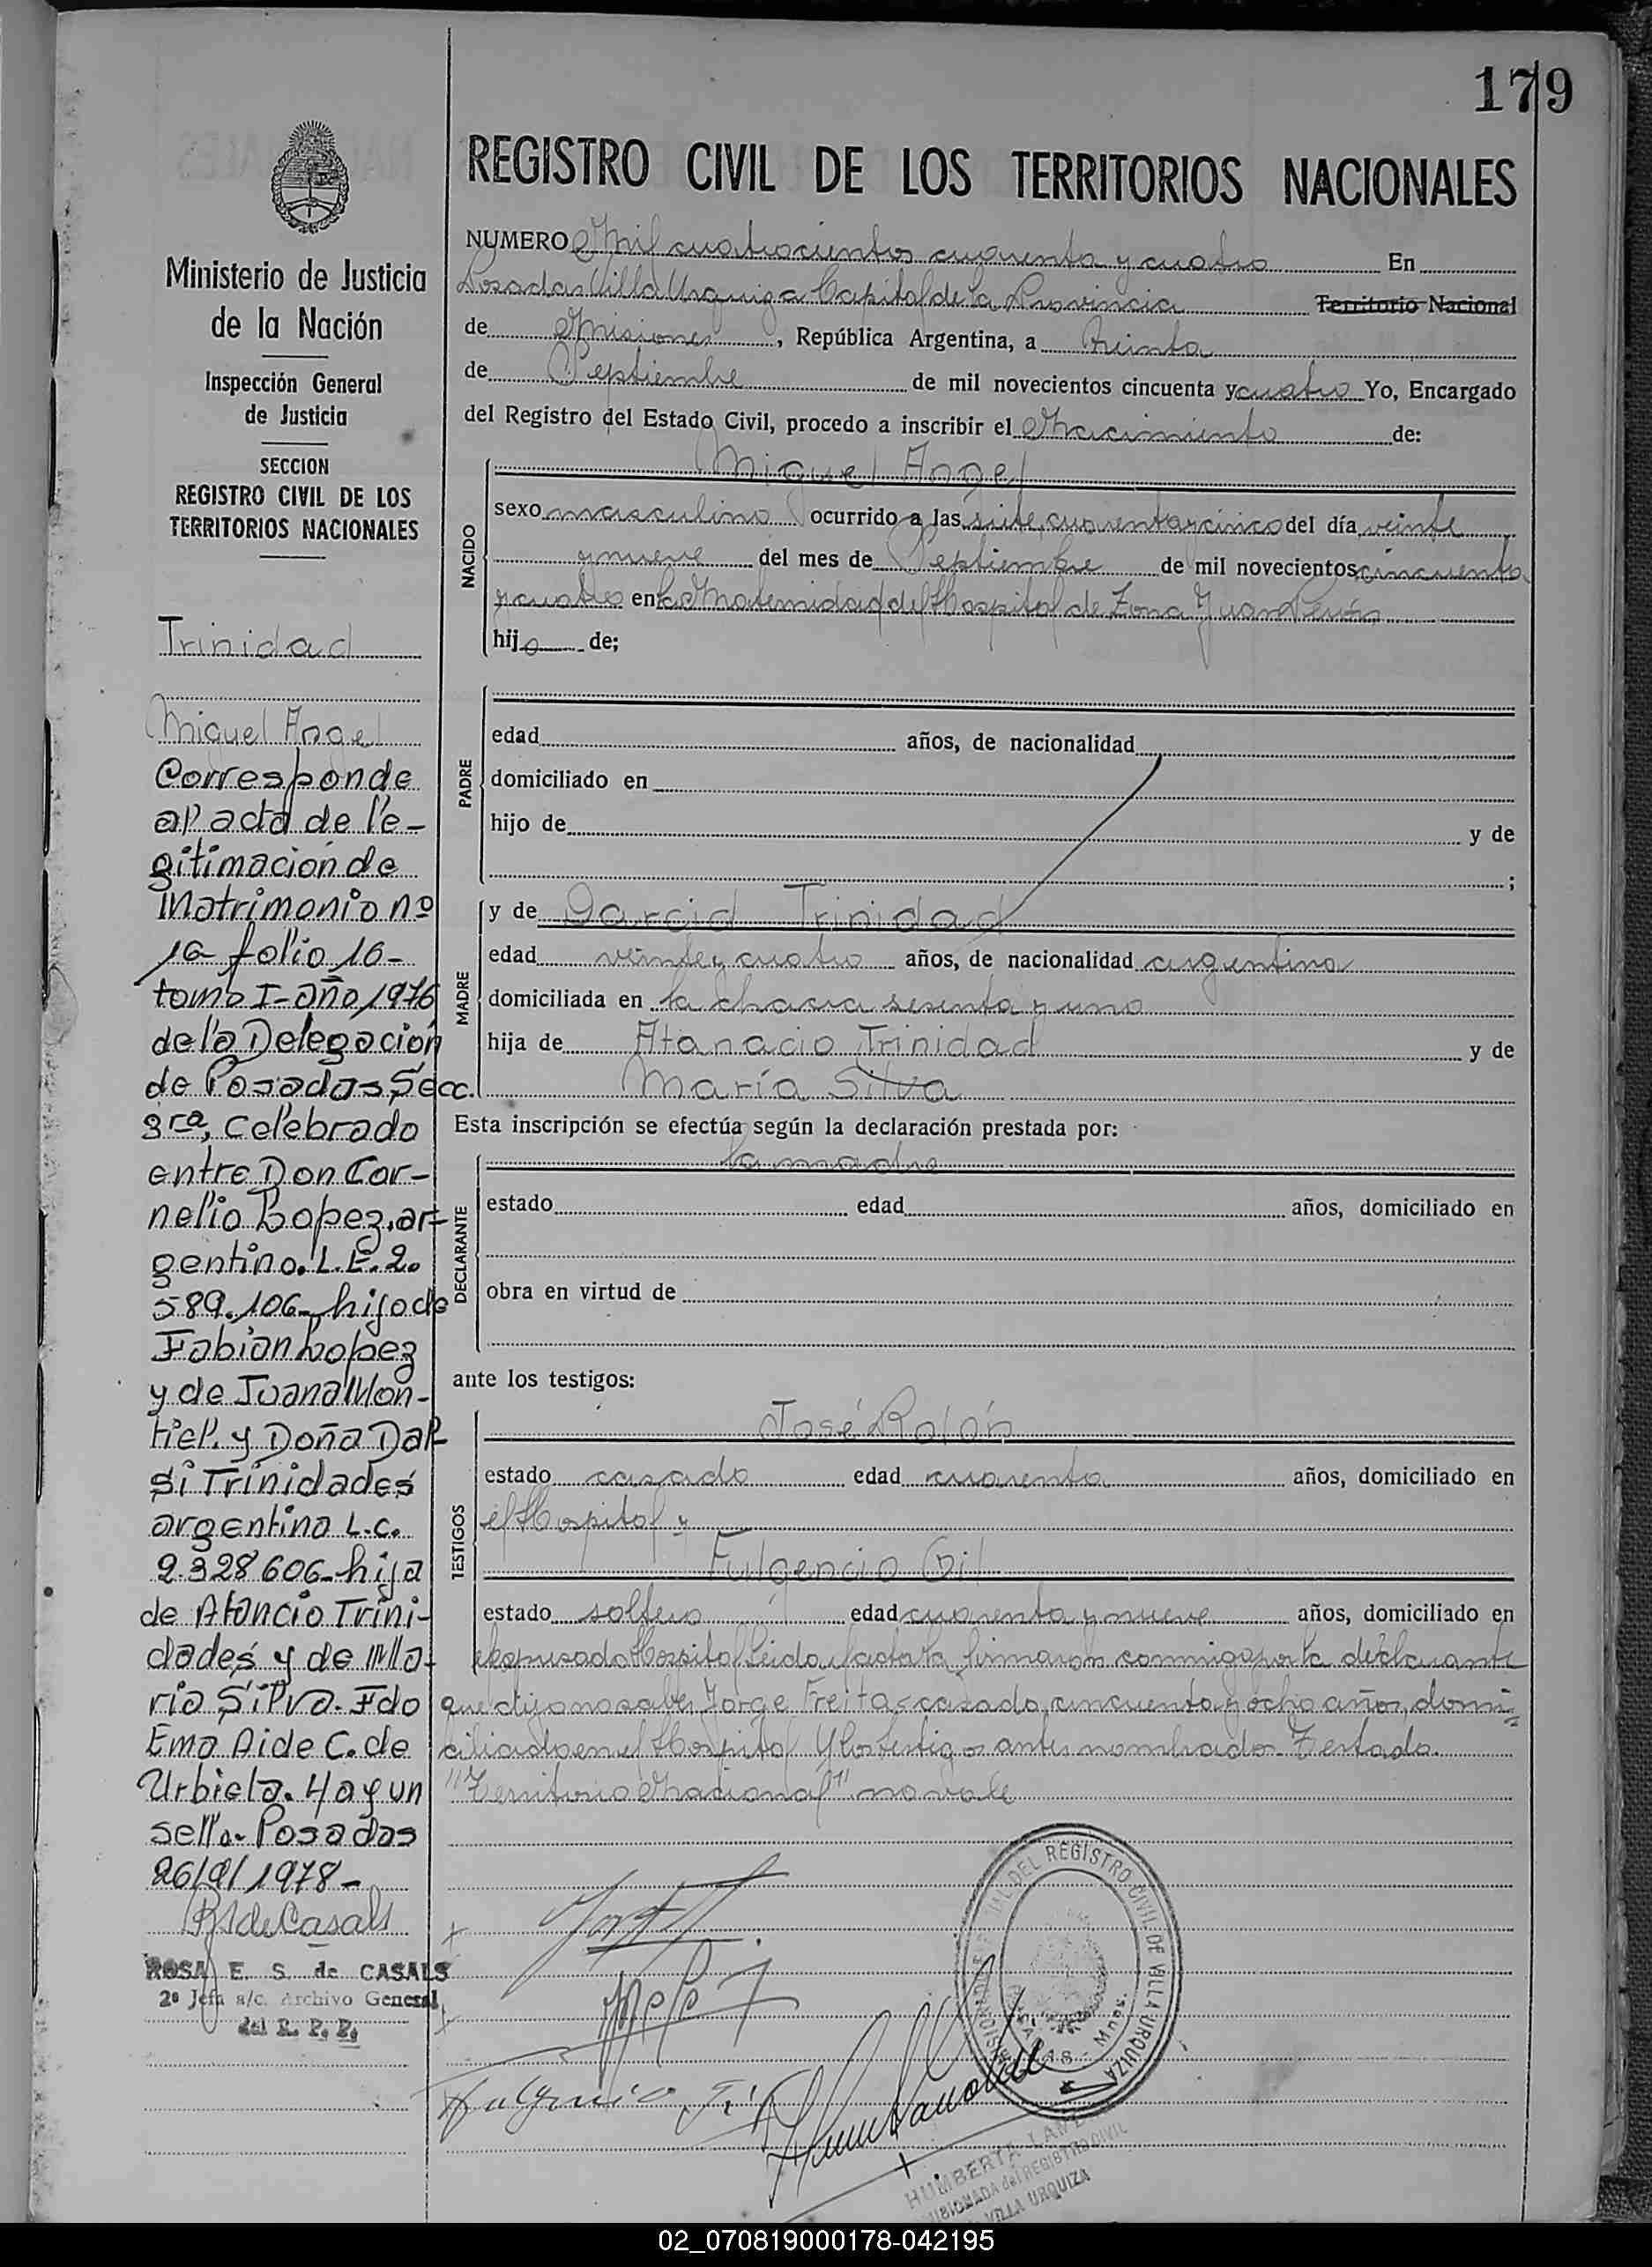 179
REGISTRO CIVIL DE LOS TERRITORIOS NACIONALES
Ministerio de Justicia
de la Nación
Inspección General
de Justicia
SECCION
REGISTRO CIVIL DE LOS
TERRITORIOS NACIONALES
Trinidad
Miguel Angel
Corresponde
al acta de le-
gitimación de
Matrimonio nº
16 folio 16-
tomo I-año 1976
de la Delegación
de Posadas Secc.
3ra, celebrado
entre Don Cor-
nelio Lopez, ar-
gentino. L.E. 2.
589.106- hijo de
Fabian Lopez
y de Juana Mon-
tiel. y Doña Dal-
si Trinidades
argentina L.C.
2.328606- hija
de Atancio Trini-
dades y de Ma-
ria Silva. Fdo
Ema Aide C. de
Urbieta. Hay un
sello- Posadas
26/9/1978-
ROSA E. S. de CASALS
2º Jefa a/c. Archivo General
del R. P. P.
NUMERO Mil cuatrocientos cuarenta y cuatro En
Posadas Villa Urquiza Capital de la Provincia Territorio Nacional
de Misiones, República Argentina, a Treinta
de Septiembre de mil novecientos cincuenta y cuatro Yo, Encargado
del Registro del Estado Civil, procedo a inscribir el Nacimiento de:
NACIDO
Miguel Angel
sexo masculino ocurrido a las siete cuarenta y cinco del día veinte
y nueve del mes de Septiembre de mil novecientos cincuenta
y cuatro en la Maternidad del Hospital de Zona Juan Perón
hijo de;
PADRE
edad años, de nacionalidad
domiciliado en
hijo de y de
;
MADRE
y de Darcid Trinidad
edad veinte y cuatro años, de nacionalidad argentina
domiciliada en la chacra sesenta y uno
hija de Atanacio Trinidad y de
María Silva
Esta inscripción se efectúa según la declaración prestada por:
DECLARANTE
la madre
estado edad años, domiciliado en
obra en virtud de
ante los testigos:
TESTIGOS
José Rolón
estado casado edad cuarenta años, domiciliado en
el Hospital y
Fulgencio Gil
estado soltero edad cuarenta y nueve años, domiciliado en
el expresado Hospital Leida el acta la firmaron conmigo por la declarante
que dijo no saber Jorge Freitas casado cincuenta y ocho años, domi=
ciliado en el Hospital Y los testigos antes nombrados. Testado.
"Territorio Nacional" no vale
DEL REGISTRO CIVIL DE VILLA URQUIZA
HUMBERTA
del REGISTRO CIVIL
VILLA URQUIZA
02_070819000178-042195